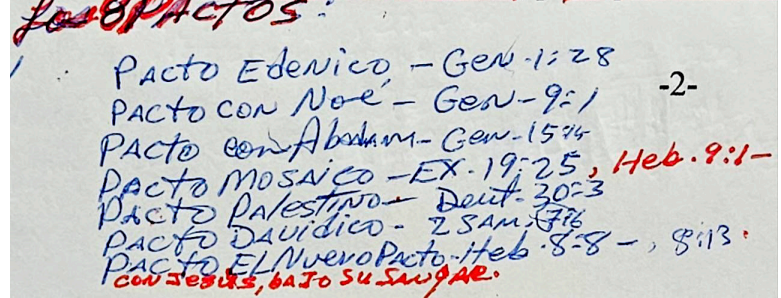 Los 8 PACTOS:
PACTO EdeNico, - GeN-1:28
-2-
PACTO CON Noé - Gen-9:1
PACTO con Abraham- Gen-15:
PACTO MOSAico - EX.19:25, Heb.9:1-
PACTO PAlesTINO - Deut-30:3
PACTO DAVidico - 2 SAM.
PACTO EL NuevO PActo-Heb.8:8-, 8:13.
CON Jesus, bAJO SU